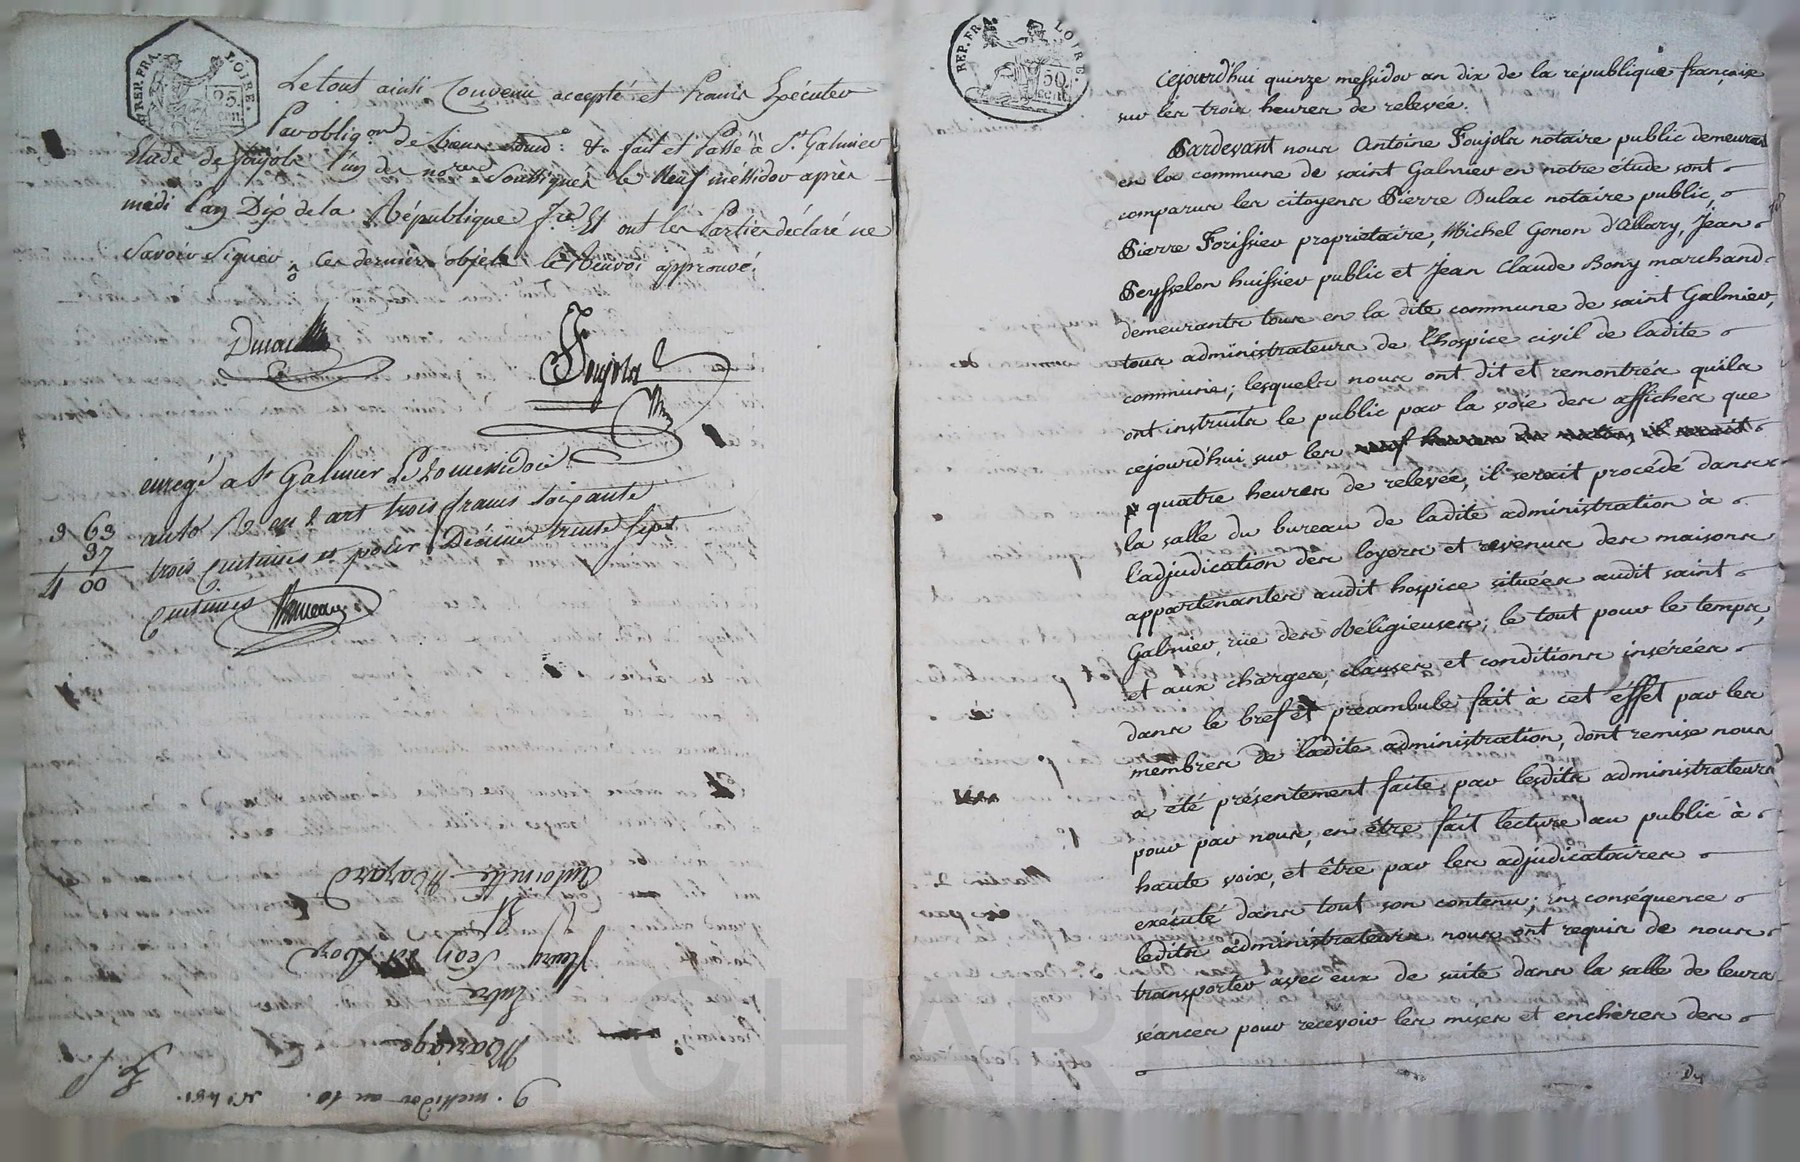 REP. FRA. LOIRE. 25. cen.
Le tout ainsi Convenu accepté et Promis Exécuter
Par oblig.on de biens soum: &a fait et Passé à St Galmier
Etude de foujols l'un des nores Soussignés le Neuf messidor après
midi l'an Dix de la République fse Et ont les Parties déclaré ne
Savoir Signer. Ces derniers objets le Renvoi approuvé.
Dulac
Foujols
enregé a St Galmier Le 20 messidor
auto 10 en 2 art trois francs soixante
3 63
trois centimes et pour Dixime trente sept
37
4 00
centimes
Antoinette Mazard
Et
fleury Jean
Entre
Mariage
9. messidor an 10. No 481.
REP. FRA. LOIRE. 50. cent.
Cejourd'hui quinze messidor an dix de la république françoise
sur les trois heures de relevée.
Pardevant nous Antoine Foujols notaire public demeurant
en la commune de saint Galmier en notre étude sont
comparus les citoyens Pierre Dulac notaire public,
Pierre Forissier proprietaire, Michel Gonon d'Allary, Jean
Peysselon huissier public et Jean Claude Bony marchand
demeurants tous en la dite commune de saint Galmier,
tous administrateurs de l'hospice civil de ladite
commune; lesquels nous ont dit et remontrés qu'ils
ont instruits le public par la voie des affiches que
cejourd'hui sur les neuf heures du matin, il seroit
quatre heures de relevée, il seroit procédé dans
la salle du bureau de ladite administration à
l'adjudication des loyers et revenus des maisons
appartenantes audit hospice situées audit saint
Galmier, rüe des Réligieuses; le tout pour le temps,
et aux charges, clauses et conditions insérées
dans le bref et préambule fait à cet éffet par les
membres de ladite administration, dont remise nous
a été présentement faite par lesdits administrateurs
pour par nous, en être fait lecture au public à
haute voix, et être par les adjudicataires
exécuté dans tout son contenu; en conséquence
ledits administrateurs nous ont requis de nous
transporter avec eux de suite dans la salle de leurs
séances pour recevoir les mises et enchères des